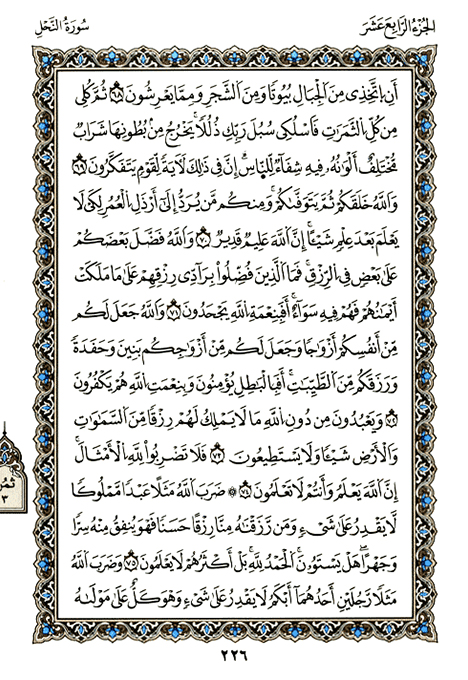 الجُزْءُ الرَّابِعَ عَشَرَ
سُورَةُ النَّحْلِ
أَنِ ٱتَّخِذِى مِنَ ٱلْجِبَالِ بُيُوتًا وَمِنَ ٱلشَّجَرِ وَمِمَّا يَعْرِشُونَ ٦٨ ثُمَّ كُلِى
مِن كُلِّ ٱلثَّمَرَٰتِ فَٱسْلُكِى سُبُلَ رَبِّكِ ذُلُلًا ۚ يَخْرُجُ مِنۢ بُطُونِهَا شَرَابٌ
مُّخْتَلِفٌ أَلْوَٰنُهُۥ فِيهِ شِفَآءٌ لِّلنَّاسِ ۗ إِنَّ فِى ذَٰلِكَ لَءَايَةً لِّقَوْمٍ يَتَفَكَّرُونَ ٦٩
وَٱللَّهُ خَلَقَكُمْ ثُمَّ يَتَوَفَّىٰكُمْ ۚ وَمِنكُم مَّن يُرَدُّ إِلَىٰٓ أَرْذَلِ ٱلْعُمُرِ لِكَىْ لَا
يَعْلَمَ بَعْدَ عِلْمٍ شَيْـًٔا ۚ إِنَّ ٱللَّهَ عَلِيمٌ قَدِيرٌ ٧٠ وَٱللَّهُ فَضَّلَ بَعْضَكُمْ
عَلَىٰ بَعْضٍ فِى ٱلرِّزْقِ ۚ فَمَا ٱلَّذِينَ فُضِّلُوا۟ بِرَآدِّى رِزْقِهِمْ عَلَىٰ مَا مَلَكَتْ
أَيْمَٰنُهُمْ فَهُمْ فِيهِ سَوَآءٌ ۚ أَفَبِنِعْمَةِ ٱللَّهِ يَجْحَدُونَ ٧١ وَٱللَّهُ جَعَلَ لَكُم
مِّنْ أَنفُسِكُمْ أَزْوَٰجًا وَجَعَلَ لَكُم مِّنْ أَزْوَٰجِكُم بَنِينَ وَحَفَدَةً
وَرَزَقَكُم مِّنَ ٱلطَّيِّبَٰتِ ۚ أَفَبِٱلْبَٰطِلِ يُؤْمِنُونَ وَبِنِعْمَتِ ٱللَّهِ هُمْ يَكْفُرُونَ
٧٢ وَيَعْبُدُونَ مِن دُونِ ٱللَّهِ مَا لَا يَمْلِكُ لَهُمْ رِزْقًا مِّنَ ٱلسَّمَٰوَٰتِ
وَٱلْأَرْضِ شَيْـًٔا وَلَا يَسْتَطِيعُونَ ٧٣ فَلَا تَضْرِبُوا۟ لِلَّهِ ٱلْأَمْثَالَ ۚ
إِنَّ ٱللَّهَ يَعْلَمُ وَأَنتُمْ لَا تَعْلَمُونَ ٧٤ ۞ ضَرَبَ ٱللَّهُ مَثَلًا عَبْدًا مَّمْلُوكًا
لَّا يَقْدِرُ عَلَىٰ شَىْءٍ وَمَن رَّزَقْنَٰهُ مِنَّا رِزْقًا حَسَنًا فَهُوَ يُنفِقُ مِنْهُ سِرًّا
وَجَهْرًا ۖ هَلْ يَسْتَوُۥنَ ۚ ٱلْحَمْدُ لِلَّهِ ۚ بَلْ أَكْثَرُهُمْ لَا يَعْلَمُونَ ٧٥ وَضَرَبَ ٱللَّهُ
مَثَلًا رَّجُلَيْنِ أَحَدُهُمَآ أَبْكَمُ لَا يَقْدِرُ عَلَىٰ شَىْءٍ وَهُوَ كَلٌّ عَلَىٰ مَوْلَىٰهُ
٢٢٦